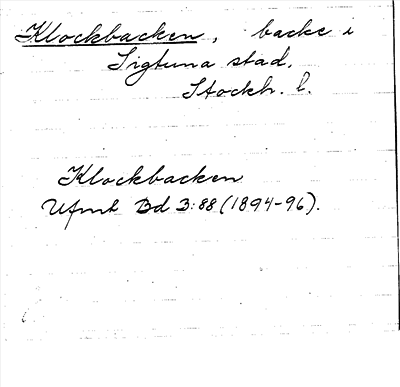 Klockbacken, backe i
Sigtuna stad,
Stockh. l.
Klockbacken
Ufmt Bd 3:88 (1894-96).